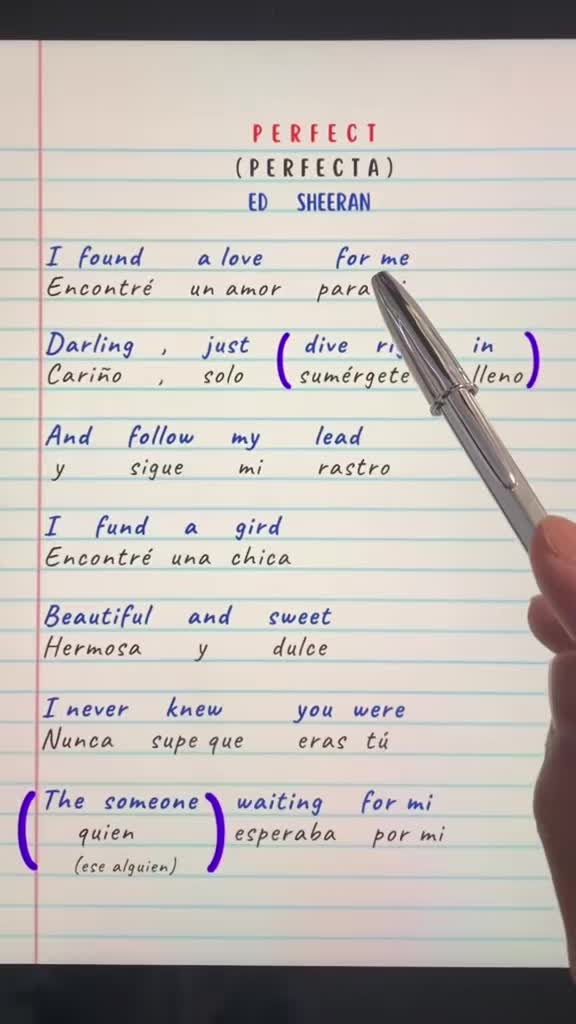 PERFECT
(PERFECTA)
ED SHEERAN
I found a love for me
Encontré un amor para
Darling , just (dive in)
Cariño , solo (sumérgete lleno)
And follow my lead
y sigue mi rastro
I fund a gird
Encontré una chica
Beautiful and sweet
Hermosa y dulce
I never knew you were
Nunca supe que eras tú
(The someone) waiting for mi
(quien) esperaba por mi
(ese alguien)